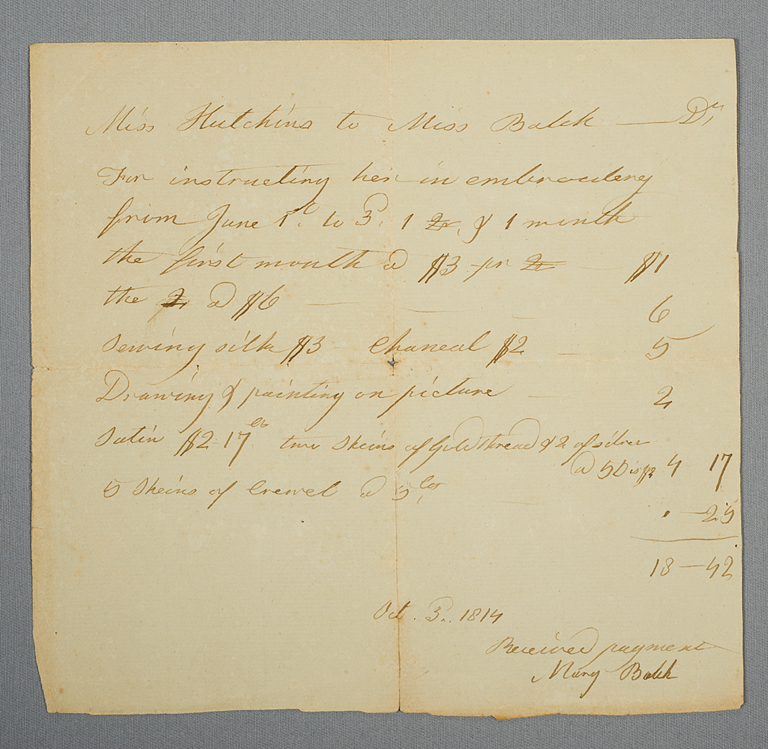 Miss Hutchins to Miss Balch — Dr,
For instructing her in embroidery
from June 1st. to 3d. 1 2r. & 1 month
the first month a $3 pr 2r $1
the 2r a $6 — 6
Sewing silk $3 — Chaneal $2 — 5
Drawing & painting on picture — 2
Satin $2-17 cts two skeins of Gold thread & 2 of silver
a 50 4 17
5 Skeins of Crewel a 5 cts,
— 25
18—42
Oct. 3. 1814
Received payment
Mary Balch